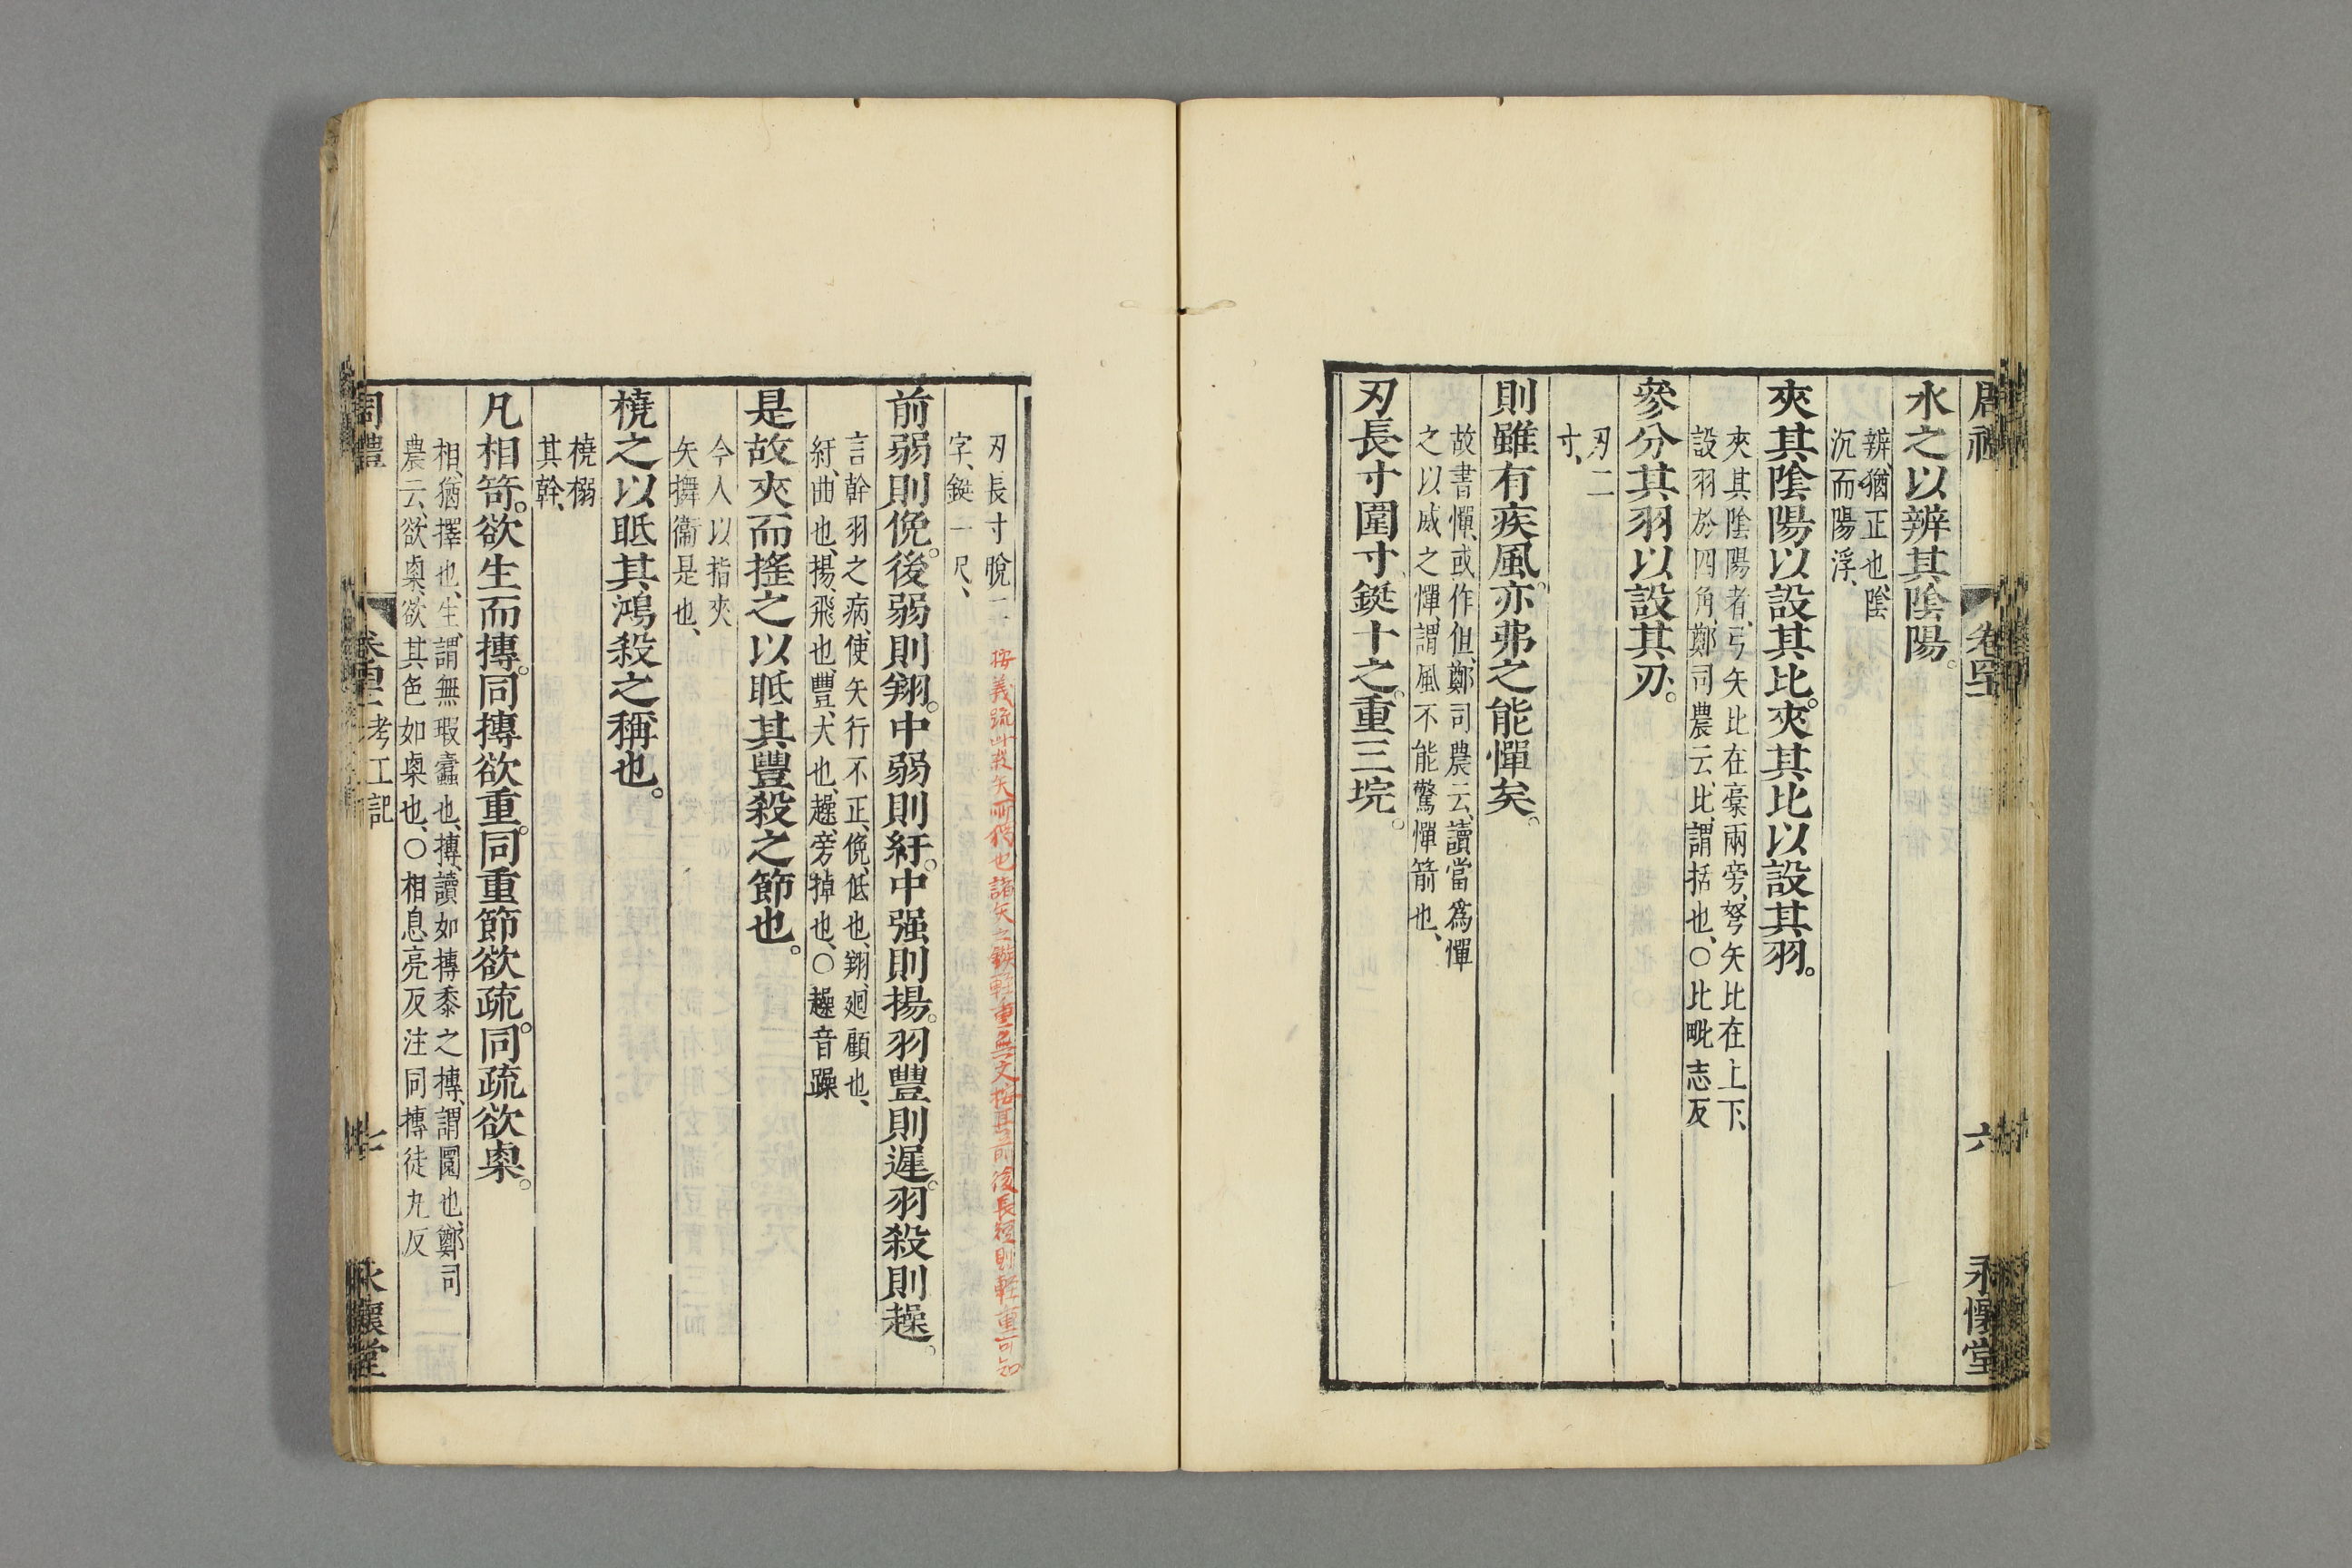 水之以辨其陰陽。
辨、猶正也、陰
沉而陽浮、
夾其陰陽以設其比。夾其比以設其羽。
夾其陰陽者、弓矢比在槀兩旁、弩矢比在上下、
設羽於四角、鄭司農云、比、謂括也、○比毗志反
參分其羽以設其刃。
刃二
寸、
則雖有疾風。亦弗之能憚矣。
故書憚、或作但、鄭司農云、讀當爲憚
之以威之憚、謂風不能驚憚箭也、
刃長寸圍寸鋌十之。重三垸。
卷四十二
六
永懷堂
刃長寸脫二
字、鋌一尺、
按義疏此殺矢所獨也諸矢之鏃輕重無文按其前後長短則輕重可知
前弱則俛。後弱則翔。中弱則紆。中强則揚。羽豐則遲。羽殺則趮。
言幹羽之病、使矢行不正、俛、低也、翔、廻顧也、
紆、曲也、揚、飛也、豐、大也、趮、旁掉也、○趮音躁
是故夾而搖之以眡其豐殺之節也。
今人以指夾
矢儛衞是也、
橈之以眡其鴻殺之稱也。
橈搦
其幹、
凡相笴。欲生而摶。同摶欲重。同重節欲疏。同疏欲㮚。
相、猶擇也、生、謂無瑕蠹也、摶、讀如摶黍之摶、謂圜也、鄭司
農云、欲㮚、欲其色如㮚也、○相息亮反注同摶徒丸反
周禮
考工記
七
永懷堂